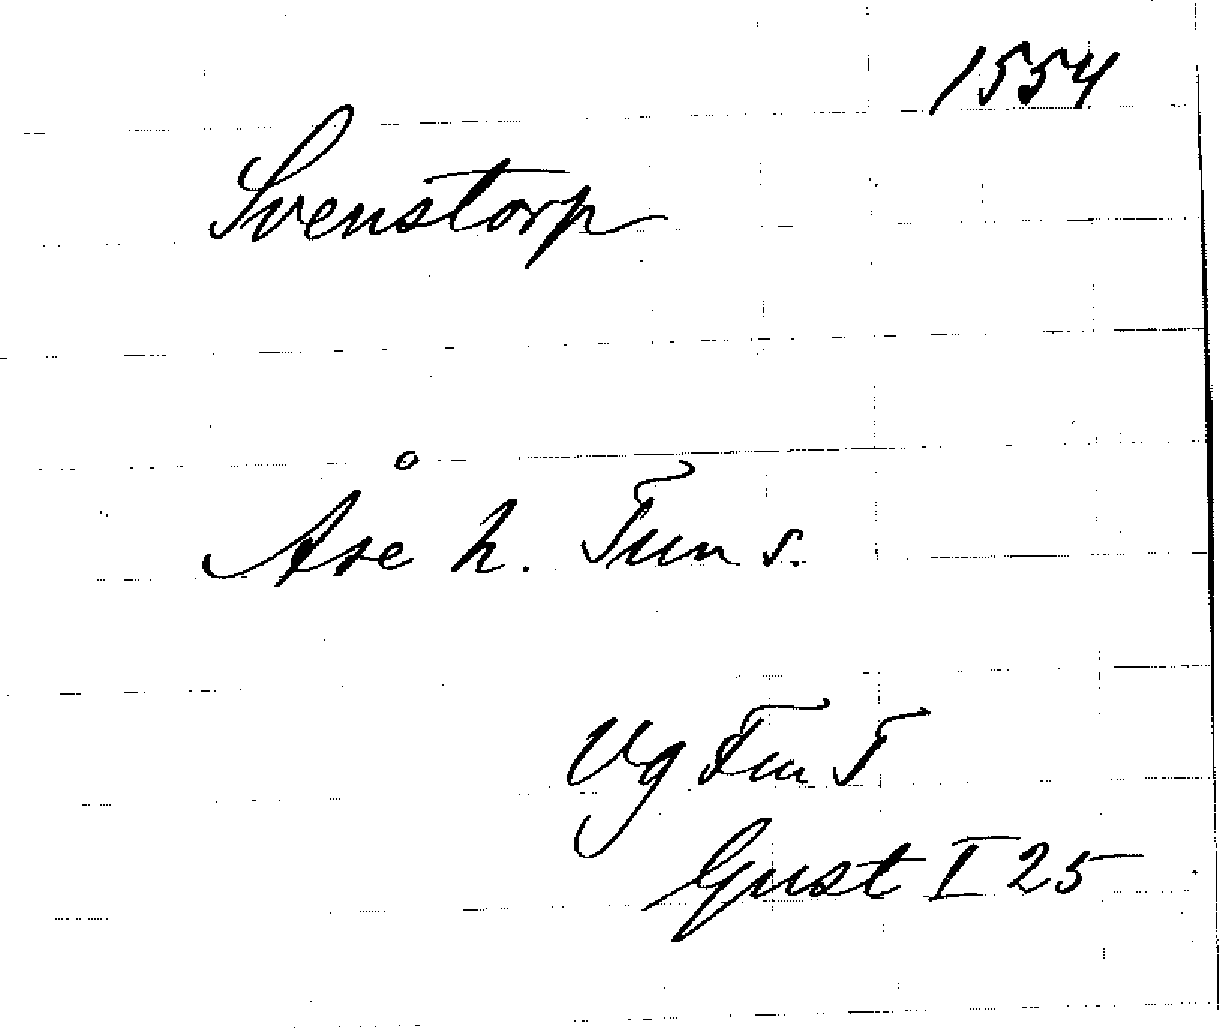 1554
Svenstorp
Åse h. Tun s.
Vg Tun T
Gust I 25